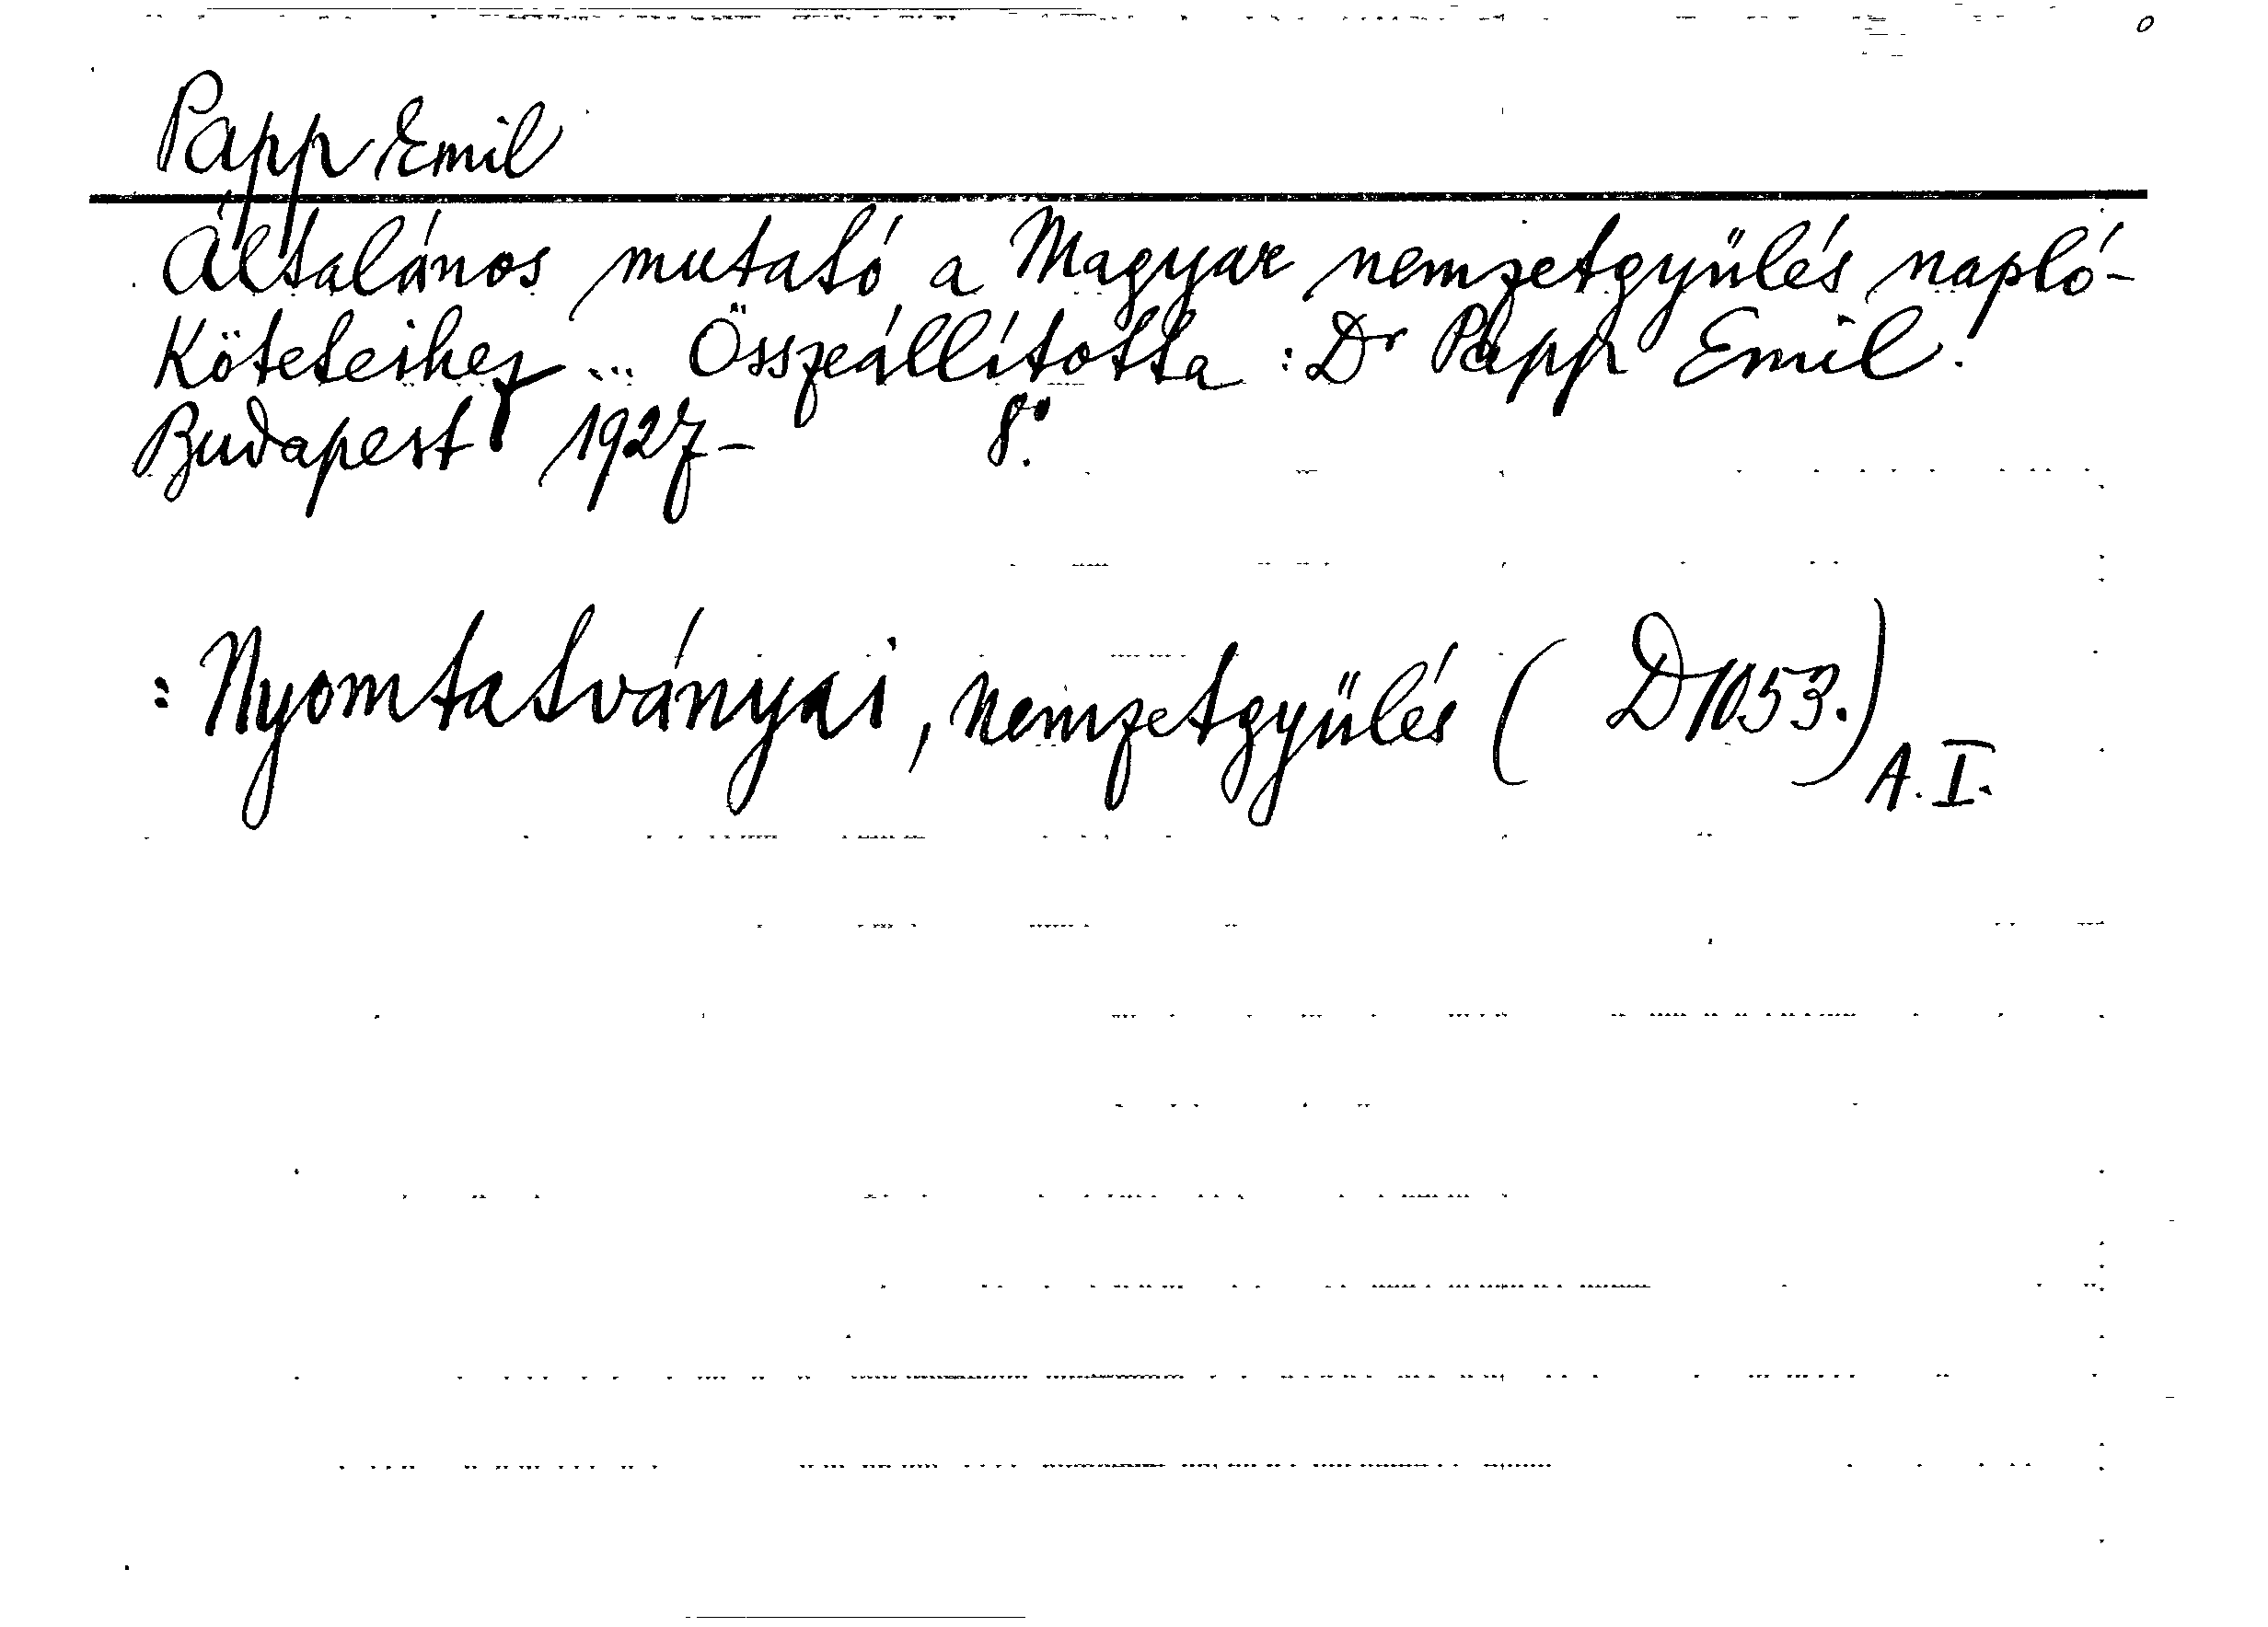 Papp Emil
Általános mutató a Magyar nemzetgyülés napló-
Köteteihez ... Összeállította : Dr Papp Emil.
Budapest 1927- 8°.
: Nyomtatványai, nemzetgyülés ( D 1053.)
A. I.